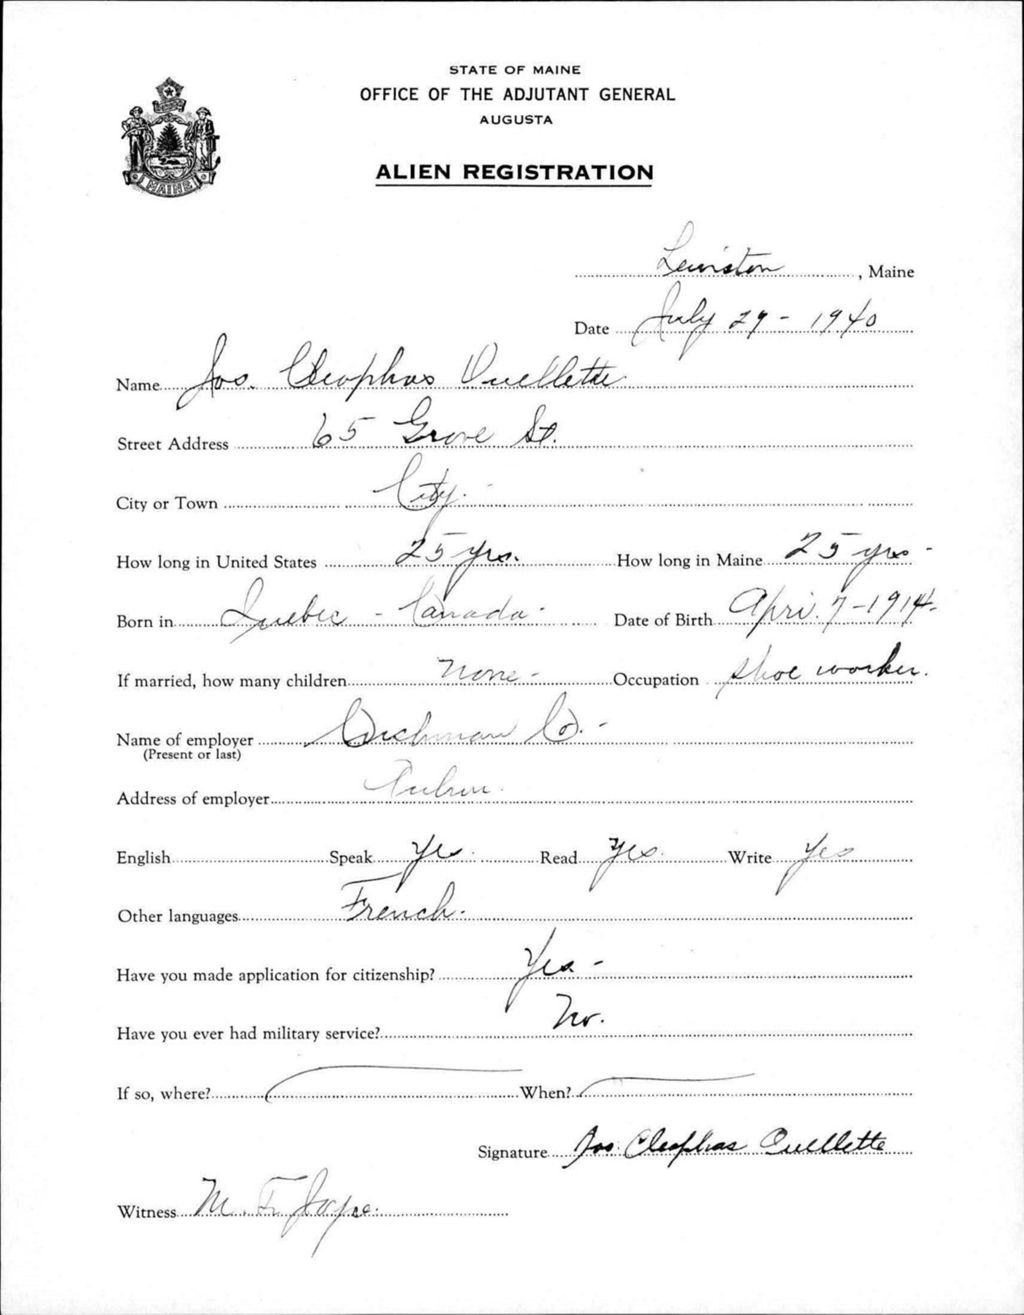 STATE OF MAINE
OFFICE OF THE ADJUTANT GENERAL
AUGUSTA
ALIEN REGISTRATION
MAINE
Lewiston, Maine
Date July 29 - 1940
Name Jos. Cleophas Ouellette
Street Address 65 Grove St.
City or Town City.
How long in United States 25 yrs. How long in Maine 25 yrs -
Born in Quebec - Canada - Date of Birth Apri. 7 - 1914 -
If married, how many children None - Occupation Shoe worker.
Name of employer Cushman Co. -
(Present or last)
Address of employer Auburn.
English Speak Yes. Read Yes. Write Yes
Other languages French.
Have you made application for citizenship? Yes -
Have you ever had military service? No.
If so, where? When?
Signature Jos Cleophas Ouellette
Witness M. F.